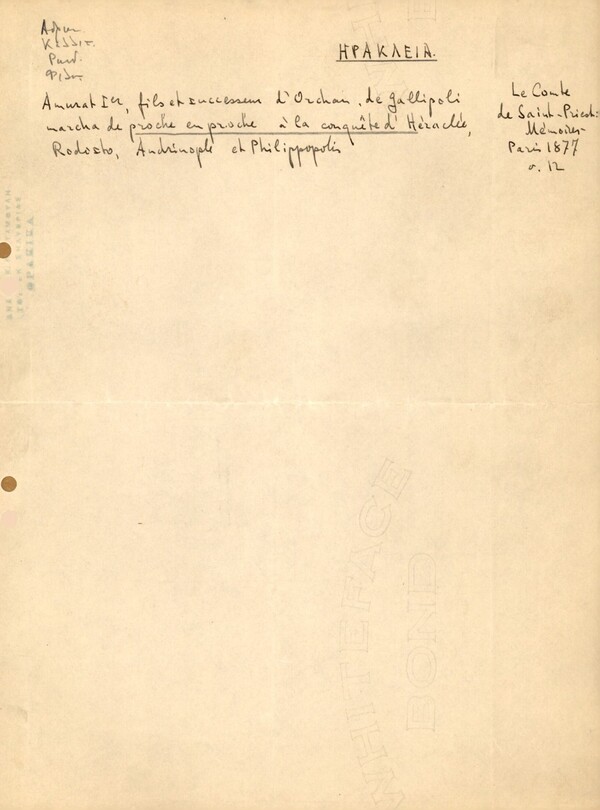 ΗΡΑΚΛΕΙΑ.
Amurat Ier, fils et successeur d'Orchan, de Gallipoli
marcha de proche en proche à la conquête d'Héraclée,
Rodosto, Andrinople et Philippopolis
Le Comte
de Saint-Priest:
Mémoires
Paris 1877
σ. 12
WHITEFACE
BOND